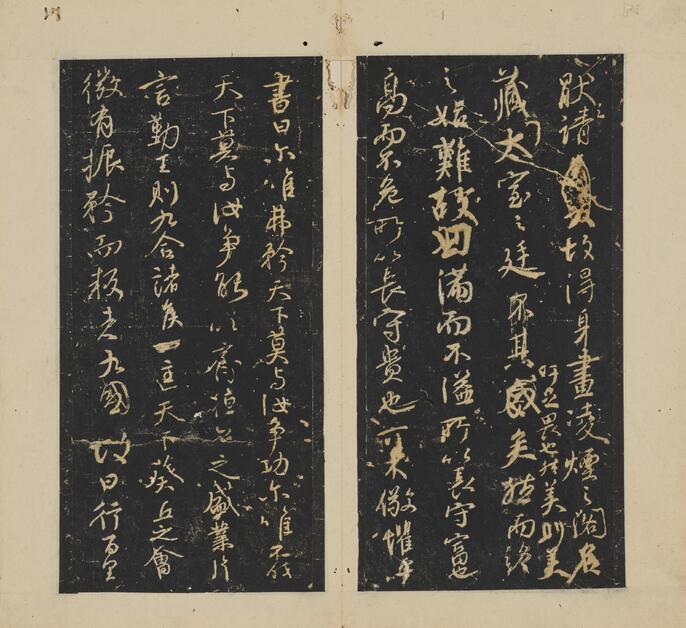 猒之請故得身畫凌煙之閣名
吁足畏也然美則美矣
藏太室之廷其盛矣然而終
之始難故曰滿而不溢所以長守富也
高而不危所以長守貴也可不儆懼乎
書曰尔唯弗矜天下莫与汝争功尔唯不伐
天下莫与汝争能以齊桓公之盛業片
言勤王則九合諸侯一匡天下葵丘之會
微有振矜而叛者九國故曰行百里